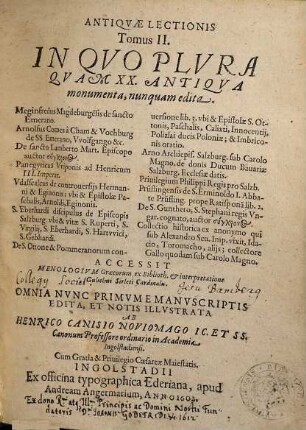 ANTIQVÆ LECTIONIS
Tomus II.
IN QVO PLVRA
QVAM XX. ANTIQVA
monumenta, nunquam edita.
Meginfredus Magdeburgēsis de sancto
Emerano.
Arnolfus Comes à Cham & Vochburg
de SS. Emerano, Vvolfgango &c.
De sancto Lamberto Mart. Episcopo
auctor σύγχρονος.
Panegyricus Vviponis ad Henricum
III. Imper.
Vdalscalcus de controversijs Hermanni
& Eginonis; vbi & Epistolæ Paschalis, Arnoldi, Eginonis.
S. Eberhardi discipulus de Episcopis
Salzburg. vbi & vitæ S. Ruperti, S.
Virgilij, S. Eberhardi, S. Hartvvici,
S. Gebhardi.
De S. Ottone & Pommeranorum conversione
lib. 2. vbi & Epistolæ S. Ottonis, Paschalis, Calixti, Innocentij,
Polizlai ducis Poloniæ, & Imbriconis
oratio.
Arno Archiepis. Salzburg. sub Carolo
Magno, de donis Ducum Bauariæ
Salzburg. Ecclesiæ datis.
Priuilegium Philippi Regis pro Salzb.
Prüflingensis de S. Erminoldo I. Abbate
Prüfling. prope Ratisponā lib. 2.
De S. Guntherо, S. Stephani regis Vngar.
cognato, auctor σύγχρονος.
Collectio historica ex anonymo qui
sub Alexandro Seu. Imp. vixit, Idacio, Toromacho, alijs; collectore
Gallo quodam sub Carolo Magno.
ACCESSIT
MENOLOGIVM Græcorum ex biblioth. & interpretatione
Guilielmi Sirleti Cardinalis.
Collegij Societ
Jesu Bamberg
OMNIA NVNC PRIMVM E MANVSCRIPTIS
EDITA, ET NOTIS ILLVSTRATA
AB
HENRICO CANISIO NOVIOMAGO IC. ET SS.
Canonum Professore ordinario in Academia
Ingolstadiensi.
Cum Gratia & Priuilegio Cæsareæ Maiestatis.
INGOLSTADII
Ex officina typographica Ederiana, apud
Andream Angermarium, ANNO 1602.
Ex dono Rmi ac Illmi Principis ac Domini Nostri Fundatoris
D. IOANNIS GODEFRIDI 1612